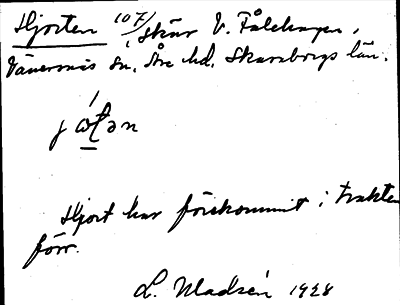 Hjorten 107/ skär V. Fålehagen,
Vänersnäs sn. Åse hd. Skaraborgs län.
Hjort har förekommit i trakten
förr.
L. Madsén 1928